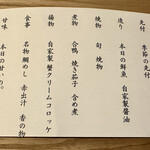 先付　季節の先付
造り　本日の鮮魚　自家製醤油
焼物　旬　焼物
煮物　合鴨　焼き茄子　含め煮
揚物　自家製　蟹クリームコロッケ
食事　名物　鯛めし　赤出汁　香の物
甘味　本日の甘いの。